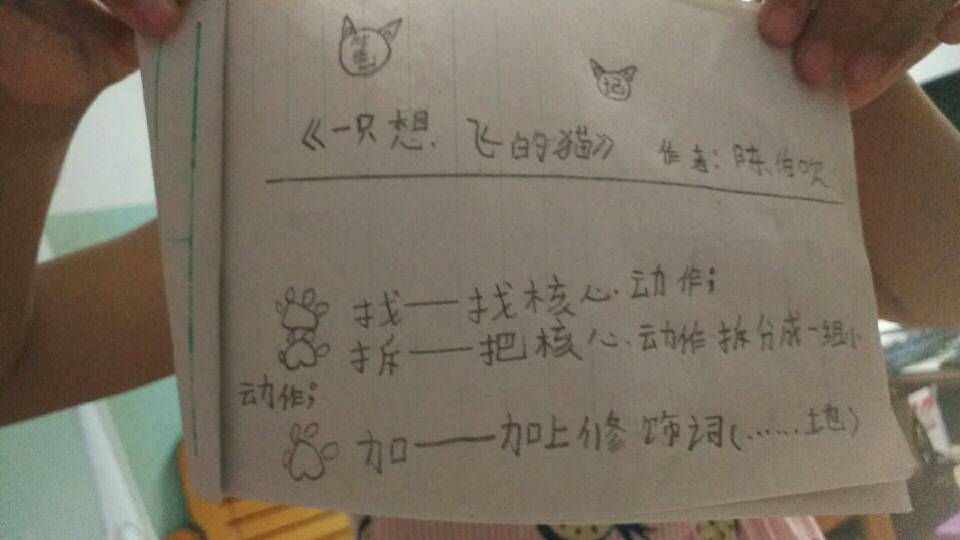 笔
记
《一只想飞的猫》 作者：陈伯吹
找——找核心动作；
拆——把核心动作拆分成一组小
动作；
加——加上修饰词(……地)